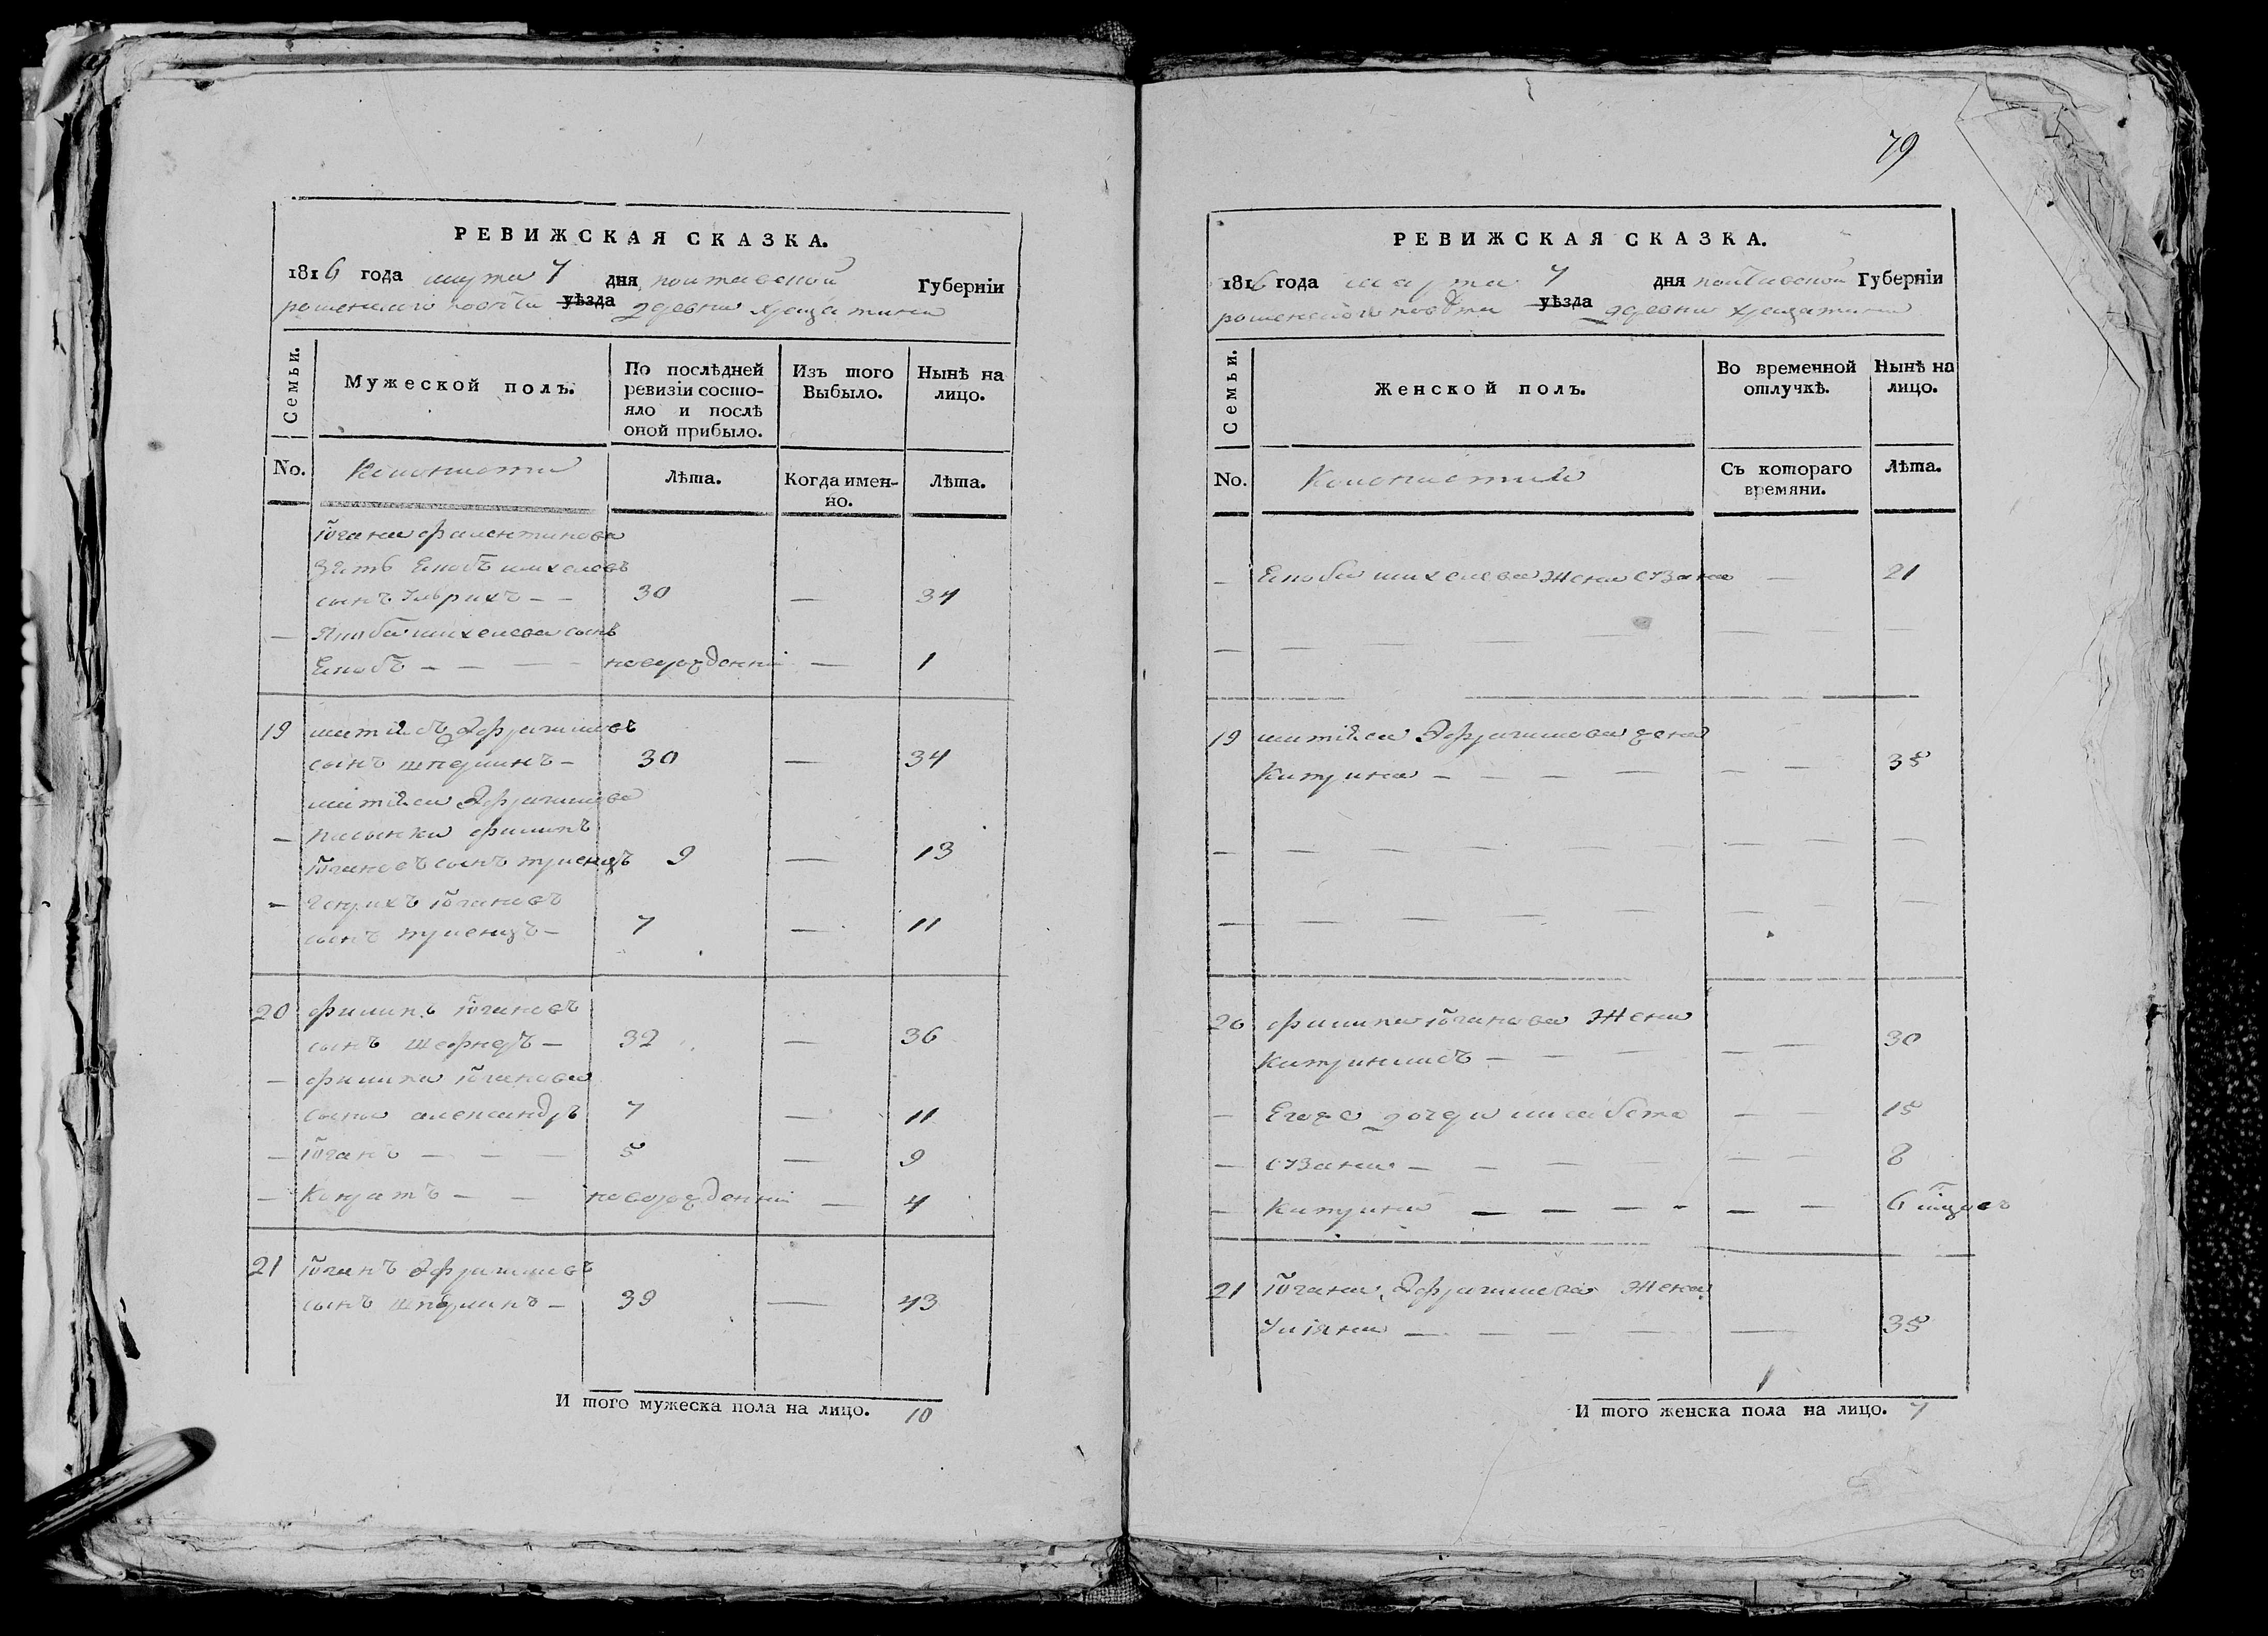 РЕВИЖСКАЯ СКАЗКА.
1816 года марта 7 дня полтавской Губерніи
роменского повѣта уѣзда деревни хрещатики
Семьи.
Мужеской полъ.
По послѣдней ревизіи состо-
яло и послѣ
оной прибыло.
Изъ того
Выбыло.
Нынѣ на
лицо.
No.
Колонисти
Лѣта.
Когда имен-
но.
Лѣта.
Югана фалентинова
зять Екобъ михелевъ
сынъ 30 — 34
— Якоба михелева сынъ
Екобъ — — — — новорожденни — 1
19 матіасъ Эфраимовъ
сынъ шперлинъ — 30 — 34
матіаса Эфраимова
— пасынки филипъ
Югановъ сынъ 9 — 13
— генрихъ Югановъ
сынъ — 7 — 11
20 филипъ Югановъ
сынъ — 32 — 36
— филипа Юганова
сыны александръ 7 — 11
— Юганъ — — — 5 — 9
— Конратъ — — новорожденни — 4
21 Юганъ Эфраимовъ
сынъ шперлинъ — 39 — 43
И того мужеска пола на лицо. 10
79
РЕВИЖСКАЯ СКАЗКА.
1816 года марта 7 дня полтавской Губерніи
роменского повѣта уѣзда деревни хрещатики
Семьи.
Женской полъ.
Во временной
отлучкѣ.
Нынѣ на
лицо.
No.
Колонистки
Съ котораго
времяни.
Лѣта.
— Екоба михелева жена сузана — 21
19 матіаса Эфраимова жена
Катрина — — — — — — 35
20 филипа Юганова жена
— — — — — 30
— Егоже дочери лисабета — — 15
— сузана — — — — — — 8
— Катрина — — — — — — 6
21 Югана Эфраимова жена
Уліяна — — — — — 35
И того женска пола на лицо. 7